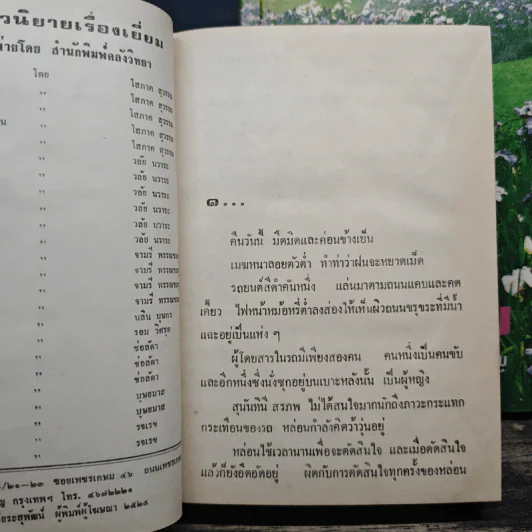 วนิยายเรื่องเยี่ยม
น่ายโดย สำนักพิมพ์คลังวิทยา
โดย โสภาค สุวรรณ
" โสภาค สุวรรณ
" โสภาค สุวรรณ
" โสภาค สุวรรณ
" โสภาค สุวรรณ
" วลัย นวาระ
" วลัย นวาระ
" วลัย นวาระ
" วลัย นวาระ
" วลัย นวาระ
" วลัย นวาระ
" จามรี พรรณชมพู
" จามรี พรรณชมพู
" จามรี พรรณชมพู
" นลิน บุษกร
" รอม วิศรุต
" ช่อลัดา
" ช่อลัดา
" ช่อลัดา
" บุษยมาส
" บุษยมาส
" รจเรข
" รจเรข
/๒๑-๒๓ ซอยเพชรเกษม ๔๖ ถนนเพชรเกษม
ญ กรุงเทพฯ โทร. ๔๖๗๒๒๒๑
ผู้พิมพ์ผู้โฆษณา ๒๕๒๕
๑...
คืนวันนี้ มืดมิดและค่อนข้างเย็น
เมฆหนาลอยตัวต่ำ ทำท่าว่าฝนจะหยาดเม็ด
รถยนต์สีดำคันหนึ่ง แล่นมาตามถนนแคบและคด
เคี้ยว ไฟหน้าหม้อหรี่ต่ำลงส่องให้เห็นผิวถนนขรุขระที่มีน้ำ
แฉะอยู่เป็นแห่ง ๆ
ผู้โดยสารในรถมีเพียงสองคน คนหนึ่งเป็นคนขับ
และอีกหนึ่งซึ่งนั่งซุกอยู่บนเบาะหลังนั้น เป็นผู้หญิง
สุนันทินี สรภพ ไม่ได้สนใจมากนักถึงภาวะกระแทก
กระเทือนของรถ หล่อนกำลังคิดว้าวุ่นอยู่
หล่อนใช้เวลานานเพื่อจะตัดสินใจ และเมื่อตัดสินใจ
แล้วก็ยังอึดอัดอยู่ ผิดกับการตัดสินใจทุกครั้งของหล่อน